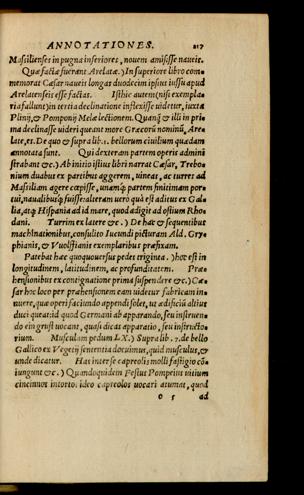 ANNOTATIONES. 217
Massilienses in pugna inferiores, nouem amisisse naueis.
Quæ facta fuerant Arelatæ.) In superiore libro com=
memorat Cæsar naueis longas duodecim ipsius iussu apud
Arelatenseis esse factas. Isthic autem (nisi exempla=
ria fallunt) in tertia declinatione inflexisse uidetur, iuxta
Plinij, & Pomponij Melæ lectionem. Quanq̃ & illi in pri
ma declinasse uideri queant more Græcorũ nominũ, Are
late, es. De quo & supra lib. 1. bellorum ciuilium quædam
annotata sunt. Qui dexteram partem operis admini
strabant &c.) Ab initio istius libri narrat Cæsar, Trebo=
nium duabus ex partibus aggerem, uineas, ac turres ad
Massiliam agere cœpisse, unamq̃ partem finitimam por=
tui, naualibusq̃ fuisse: alteram uero quà est aditus ex Gal=
lia, atq̃ Hispania ad id mare, quod adigit ad ostium Rho=
dani. Turrim ex latere &c.) De hac & sequentibus
machinationibus, consulito Iucundi picturam Ald. Gry=
phianis, & Vuolffianis exemplaribus præfixam.
Patebat hæc quoquouersus pedes triginta.) hoc est in
longitudinem, latitudinem, ac profunditatem. Præ=
hensionibus ex contignatione prima suspendere &c.) Cæ=
sar hoc loco per prehensionem eam uidetur fabricam in=
nuere, quæ operi faciundo appendi solet, ut ædificiũ altius
duci queat: id quod Germani ab apparando, seu instruen=
do ein grust uocant, quasi dicas apparatio, seu instructo=
rium. Musculum pedum LX.) Supra lib. 7. de bello
Gallico ex Vegetij sententia docuimus, quid musculus, &
unde dicatur. Has inter se capreolis molli fastigio cõ=
iungunt &c.) Quandoquidem Festus Pompeius uitium
cincinnos intortos ideo capreolos uocari autumat, quod
o 5 ad